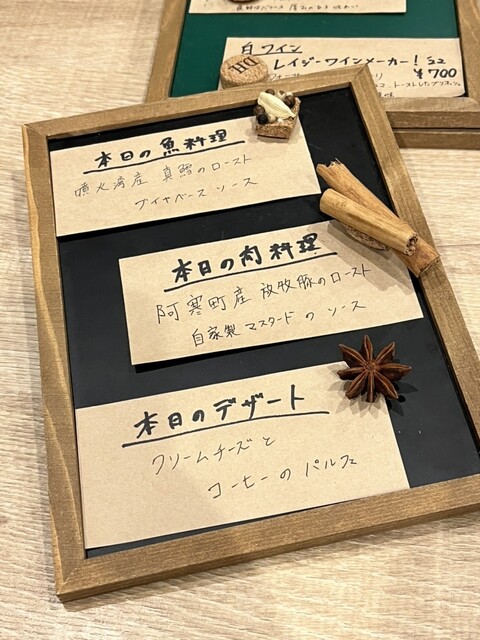 白ワイン
レイジーワインメーカー! S2
¥700
トーストしたブリオッシュ
DH
本日の魚料理
噴火湾産 真鱈のロースト
ブイヤベース ソース
本日の肉料理
阿寒町産 放牧豚のロースト
自家製マスタードのソース
本日のデザート
クリームチーズと
コーヒーのパルフェ